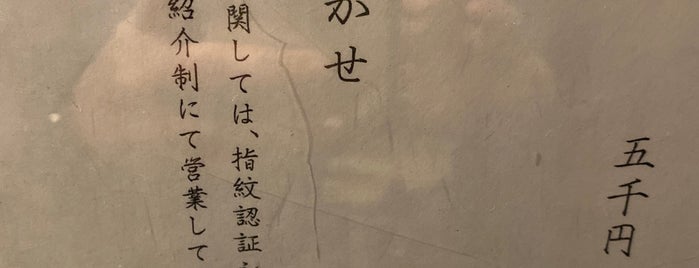 五千円
かせ
関しては、指紋認証
紹介制にて営業して